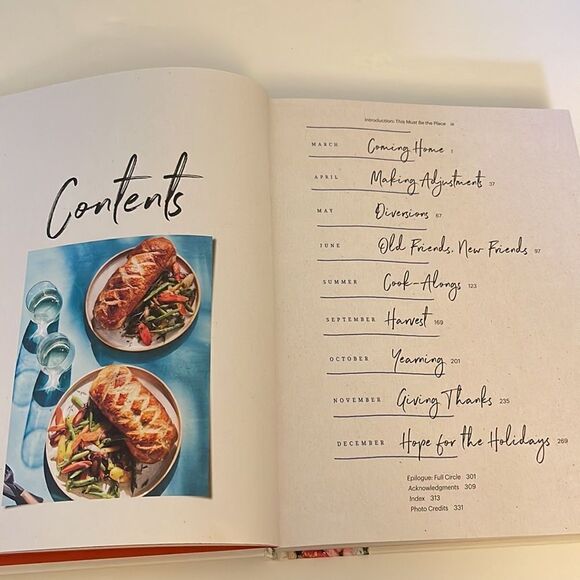 Contents
Introduction: This Must Be the Place ix
MARCH Coming Home 1
APRIL Making Adjustments 37
MAY Diversions 67
JUNE Old Friends, New Friends 97
SUMMER Cook-Alongs 123
SEPTEMBER Harvest 169
OCTOBER Yearning 201
NOVEMBER Giving Thanks 235
DECEMBER Hope for the Holidays 269
Epilogue: Full Circle 301
Acknowledgments 309
Index 313
Photo Credits 331